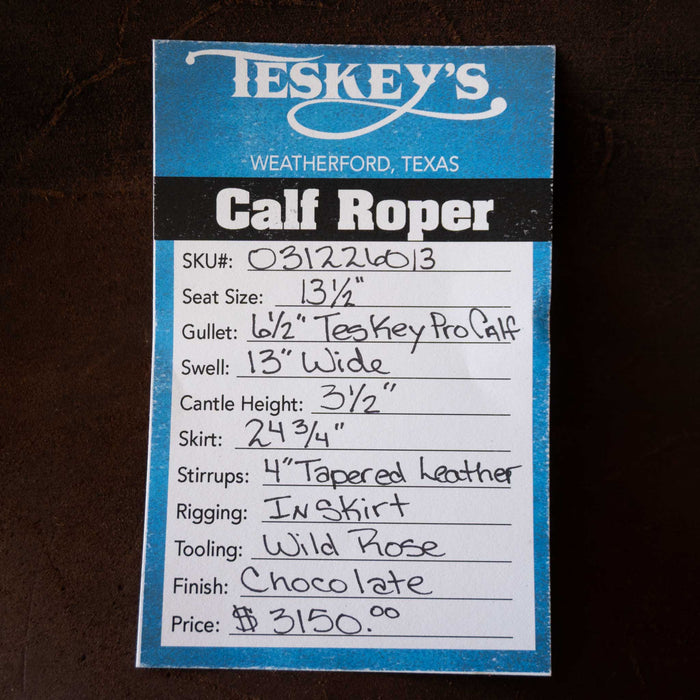 TESKEY'S
WEATHERFORD, TEXAS
Calf Roper
SKU#: 031226013
Seat Size: 13 1/2"
Gullet: 6 1/2" Teskey Pro Calf
Swell: 13" Wide
Cantle Height: 3 1/2"
Skirt: 24 3/4"
Stirrups: 4" Tapered Leather
Rigging: In Skirt
Tooling: Wild Rose
Finish: Chocolate
Price: $3150.00